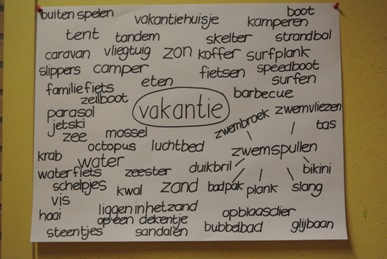 buiten spelen
vakantiehuisje
boot
kamperen
tent
tandem
skelter
strandbal
caravan
vliegtuig
zon
koffer
surfplank
slippers
camper
fietsen
speedboot
surfen
eten
familie fiets
zeilboot
barbecue
vakantie
parasol
zwemvliezen
jetski
zwembroek
tas
zee
mossel
octopus
luchtbed
zwemspullen
krab
water
duikbril
bikini
waterfiets
zeester
schelpjes
kwal
zand
badpak
plank
slang
vis
haai
liggen in het zand
op een dekentje
opblaasdier
steentjes
sandalen
bubbelbad
glijbaan